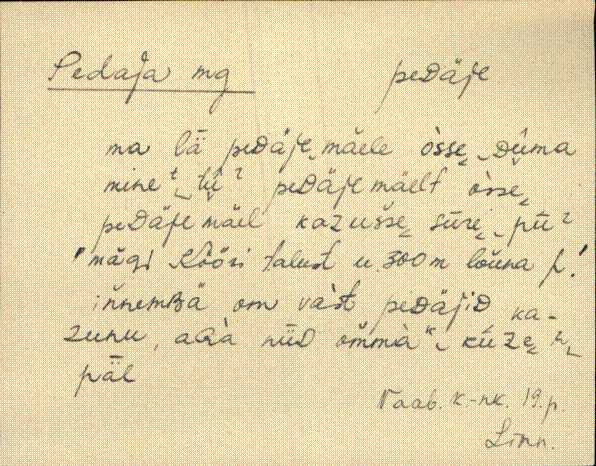 Pedaja mg pedäje
ma lä pedäje mäele òsse
mine pedäje mäelt òsse
pedäje mäel kazusse süre pü
"mägi Kööri talust u. 300 m lõuna p.!
innembä om vast pedäjid ka-
zunu, aGa nüD ommà
päl
Vaab. k.-nk. 19. p.
Linn.